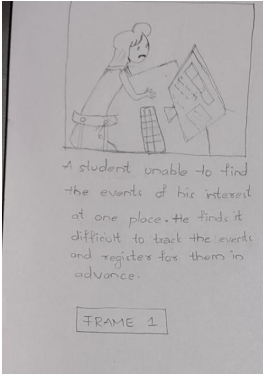 A student unable to find
the events of his interest
at one place. He finds it
difficult to track the events
and register for them in
advance.
FRAME 1